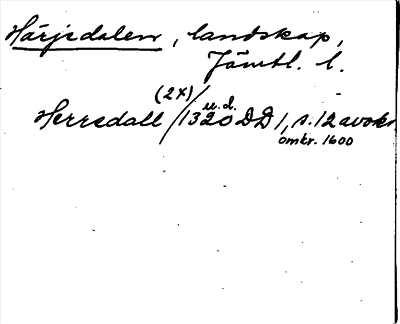 Härjedalen, landskap,
Jämtl. l.
(2x) u.d.
Herredall / 1320 DD 1, s. 12 avskr.
omkr. 1600